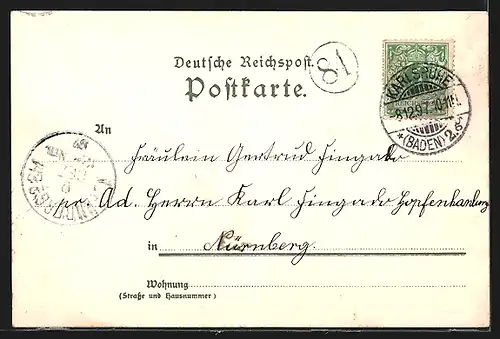 Deutsche Reichspost.
Postkarte.
81
KARLSRUHE
8.12.97.10-11V.
*(BADEN) 2.a
An
Fräulein Gertrud Lingado
pr. Ad. Herrn Karl Lingado Hopfenhandung
in Nürnberg.
Wohnung
(Straße und Hausnummer)